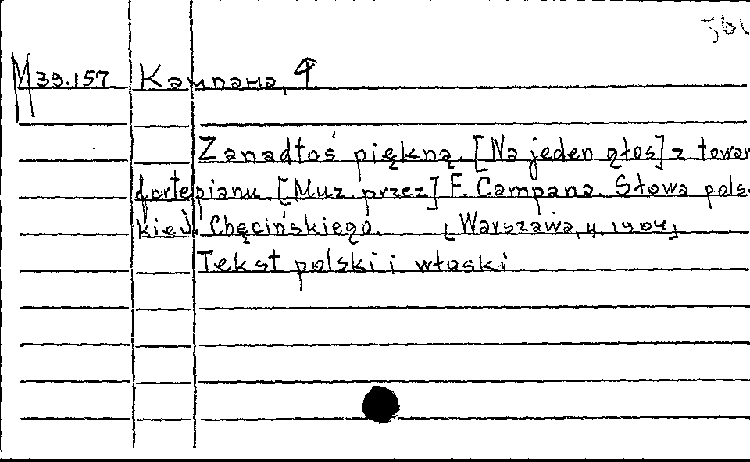 M 39.157 Кампана, Ф
Zanadtoś piękną. [Na jeden głos] z towar
fortepianu. [Muz. przez] F. Campana. Słowa pols-
kie J. Chęcińskiego. [Warszawa, 1904]
Tekst polski i włoski